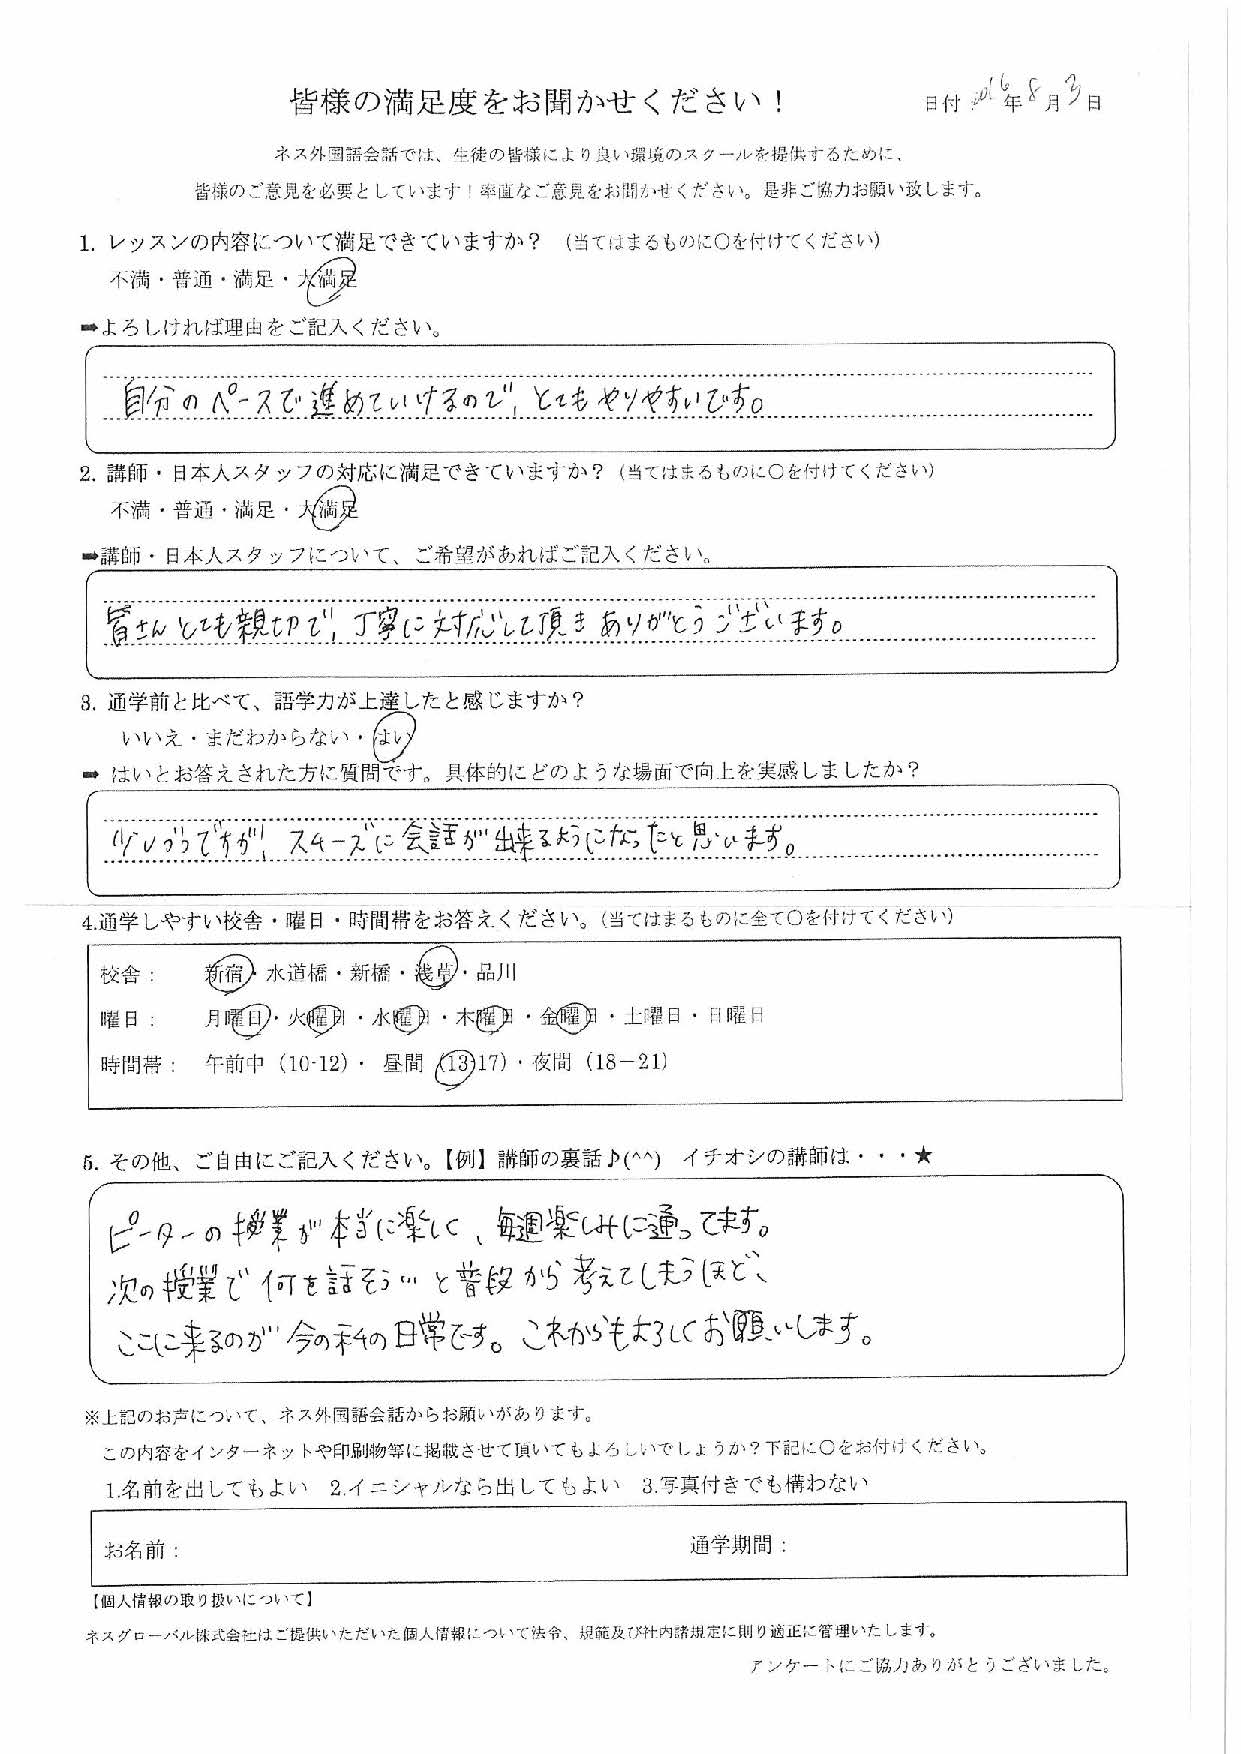 皆様の満足度をお聞かせください！
日付 2016年8月3日
ネス外国語会話では、生徒の皆様により良い環境のスクールを提供するために、
皆様のご意見を必要としています！率直なご意見をお聞かせください。是非ご協力お願い致します。
1. レッスンの内容について満足できていますか？ （当てはまるものに〇を付けてください）
不満・普通・満足・大満足
➡よろしければ理由をご記入ください。
自分のペースで進めていけるので、とてもやりやすいです。
2. 講師・日本人スタッフの対応に満足できていますか？（当てはまるものに〇を付けてください）
不満・普通・満足・大満足
➡講師・日本人スタッフについて、ご希望があればご記入ください。
皆さんとても親切で、丁寧に対応して頂きありがとうございます。
3. 通学前と比べて、語学力が上達したと感じますか？
いいえ・まだわからない・はい
➡ はいとお答えされた方に質問です。具体的にどのような場面で向上を実感しましたか？
少しづつですが、スムーズに会話が出来るようになったと思います。
4.通学しやすい校舎・曜日・時間帯をお答えください。（当てはまるものに全て〇を付けてください）
校舎： 新宿・水道橋・新橋・浅草・品川
曜日： 月曜日・火曜日・水曜日・木曜日・金曜日・土曜日・日曜日
時間帯： 午前中（10-12）・ 昼間（13-17）・夜間（18－21）
5. その他、ご自由にご記入ください。【例】講師の裏話♪(^^) イチオシの講師は・・・★
ピーターの授業が本当に楽しく、毎週楽しみに通ってます。
次の授業で何を話そう…と普段から考えてしまうほど、
ここに来るのが今の私の日常です。これからもよろしくお願いします。
※上記のお声について、ネス外国語会話からお願いがあります。
この内容をインターネットや印刷物等に掲載させて頂いてもよろしいでしょうか？下記に〇をお付けください。
1.名前を出してもよい 2.イニシャルなら出してもよい 3.写真付きでも構わない
お名前： 通学期間：
【個人情報の取り扱いについて】
ネスグローバル株式会社はご提供いただいた個人情報について法令、規範及び社内諸規定に則り適正に管理いたします。
アンケートにご協力ありがとうございました。